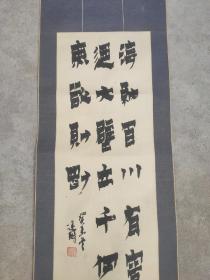 海納百川有容
迺大壁立千仞
無欲則剛
癸未